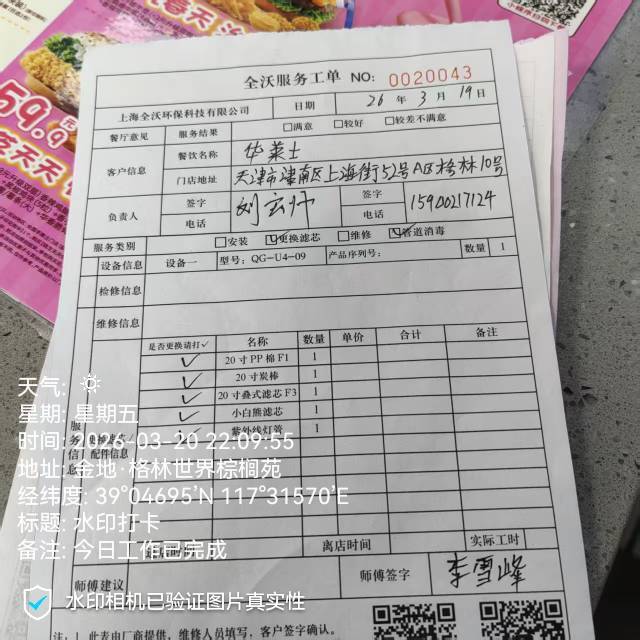 全沃服务工单 NO: 0020043
上海全沃环保科技有限公司 日期 26年3月19日
餐厅意见 服务结果 □满意 □较好 □较差不满意
客户信息 餐饮名称 华莱士
门店地址 天津市津南区上海街52号A区格林10号
负责人 签字 签字
电话 电话 15900217124
服务类别 □安装 ☑更换滤芯 □维修 ☑管道消毒
设备信息 设备一 型号: QG-U4-09 产品序列号: 数量 1
检修信息
维修信息
是否更换请打✓ 名称 数量 单价 合计 备注
✓ 20寸PP棉F1 1
✓ 20寸炭棒 1
✓ 20寸叠式滤芯F3 1
✓ 小白熊滤芯 1
✓ 紫外线灯管 1
配件信息
离店时间 实际工时
师傅建议 师傅签字 李雪峰
注:1.此表由厂商提供,维修人员填写,客户签字确认。
59.9元
天气:
星期: 星期五
时间: 2026-03-20 22:09:55
地址: 金地·格林世界棕榈苑
经纬度: 39°04695'N 117°31570'E
标题: 水印打卡
备注: 今日工作已完成
水印相机已验证图片真实性